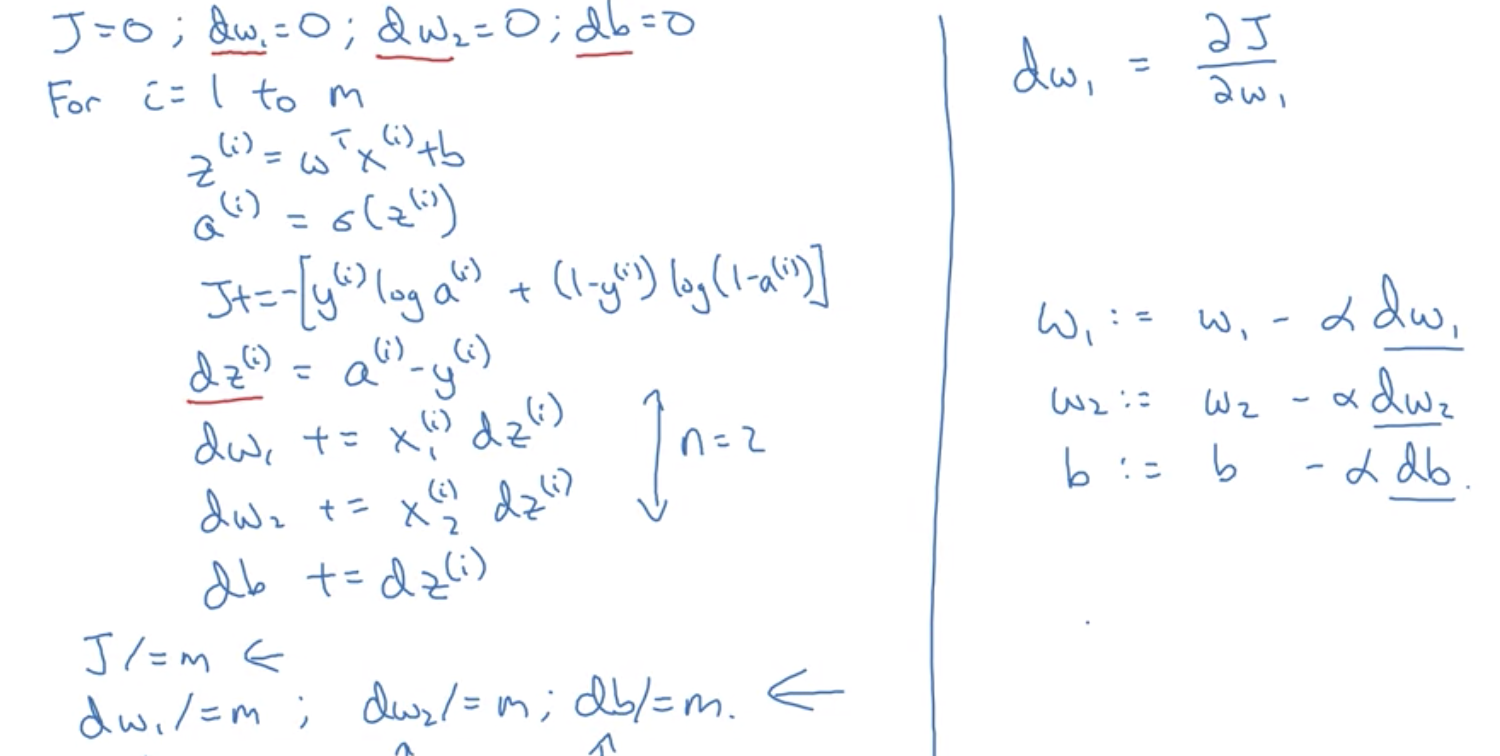 J=0 ; dw₁=0 ; dw₂=0 ; db=0
For i= 1 to m
z⁽ⁱ⁾ = ωᵀx⁽ⁱ⁾+b
a⁽ⁱ⁾ = σ(z⁽ⁱ⁾)
J+=-[y⁽ⁱ⁾ log a⁽ⁱ⁾ + (1-y⁽ⁱ⁾) log(1-a⁽ⁱ⁾)]
dz⁽ⁱ⁾ = a⁽ⁱ⁾-y⁽ⁱ⁾
dw₁ += x₁⁽ⁱ⁾ dz⁽ⁱ⁾
dw₂ += x₂⁽ⁱ⁾ dz⁽ⁱ⁾
n=2
db += dz⁽ⁱ⁾
J /=m ←
dw₁ /=m ; dw₂ /= m ; db/=m. ←
dw₁ = ∂J/∂w₁
w₁ := w₁ - α dw₁
w₂ := w₂ - α dw₂
b := b - α db.